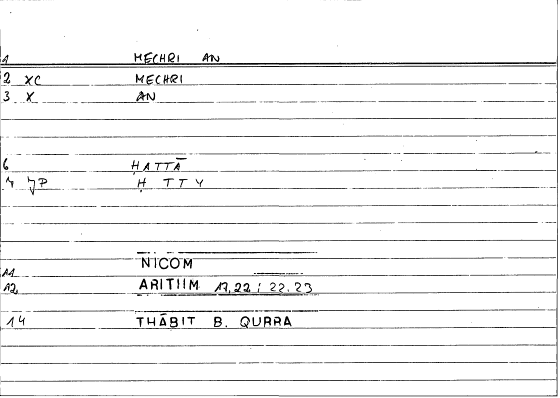 1 MECHRI AN
2 XC MECHRI
3 X AN
6 ḤATTĀ
Ḥ TTY
NICOM
11
12 ARITIIM 17,22 ; 22.23
14 THĀBIT B. QURRA